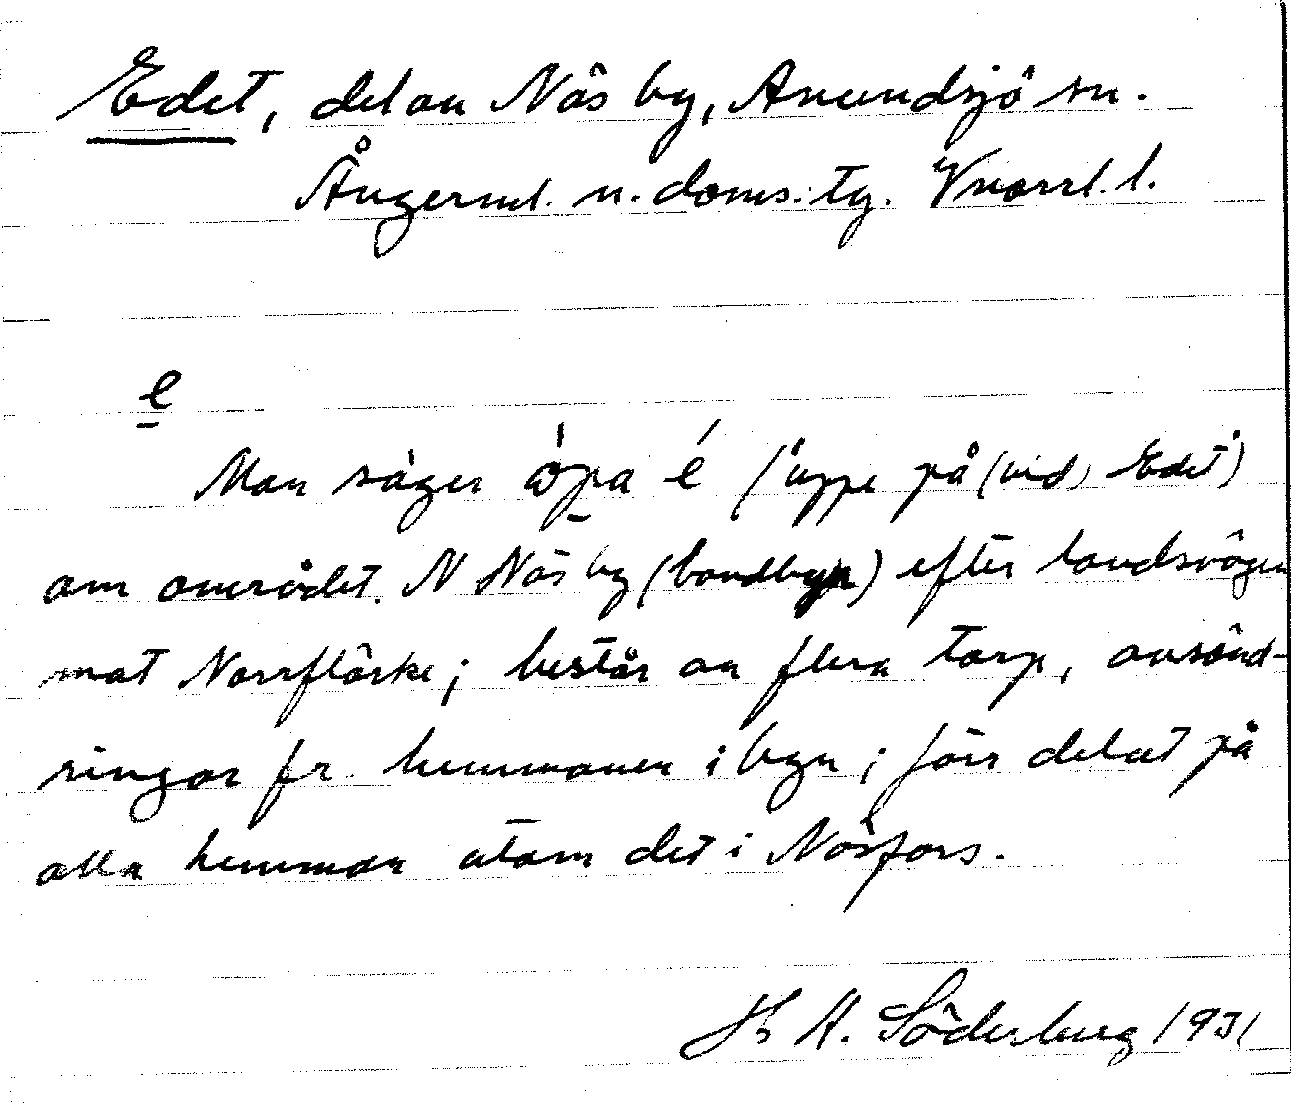 Edet, del av Näs by, Anundsjö sn.
Ångerml. n. doms. tg. Vnorrl. l.
e
Man säger öpa é ('uppe på (vid) Edet')
om området N Näs by (bondbyn) efter landsvägen
mot Norrflärke; består av flera torp, avsönd-
ringar fr. hemmanen i byn; förr delat på
alla hemman utom det i Näsfors.
H A. Söderberg 1931